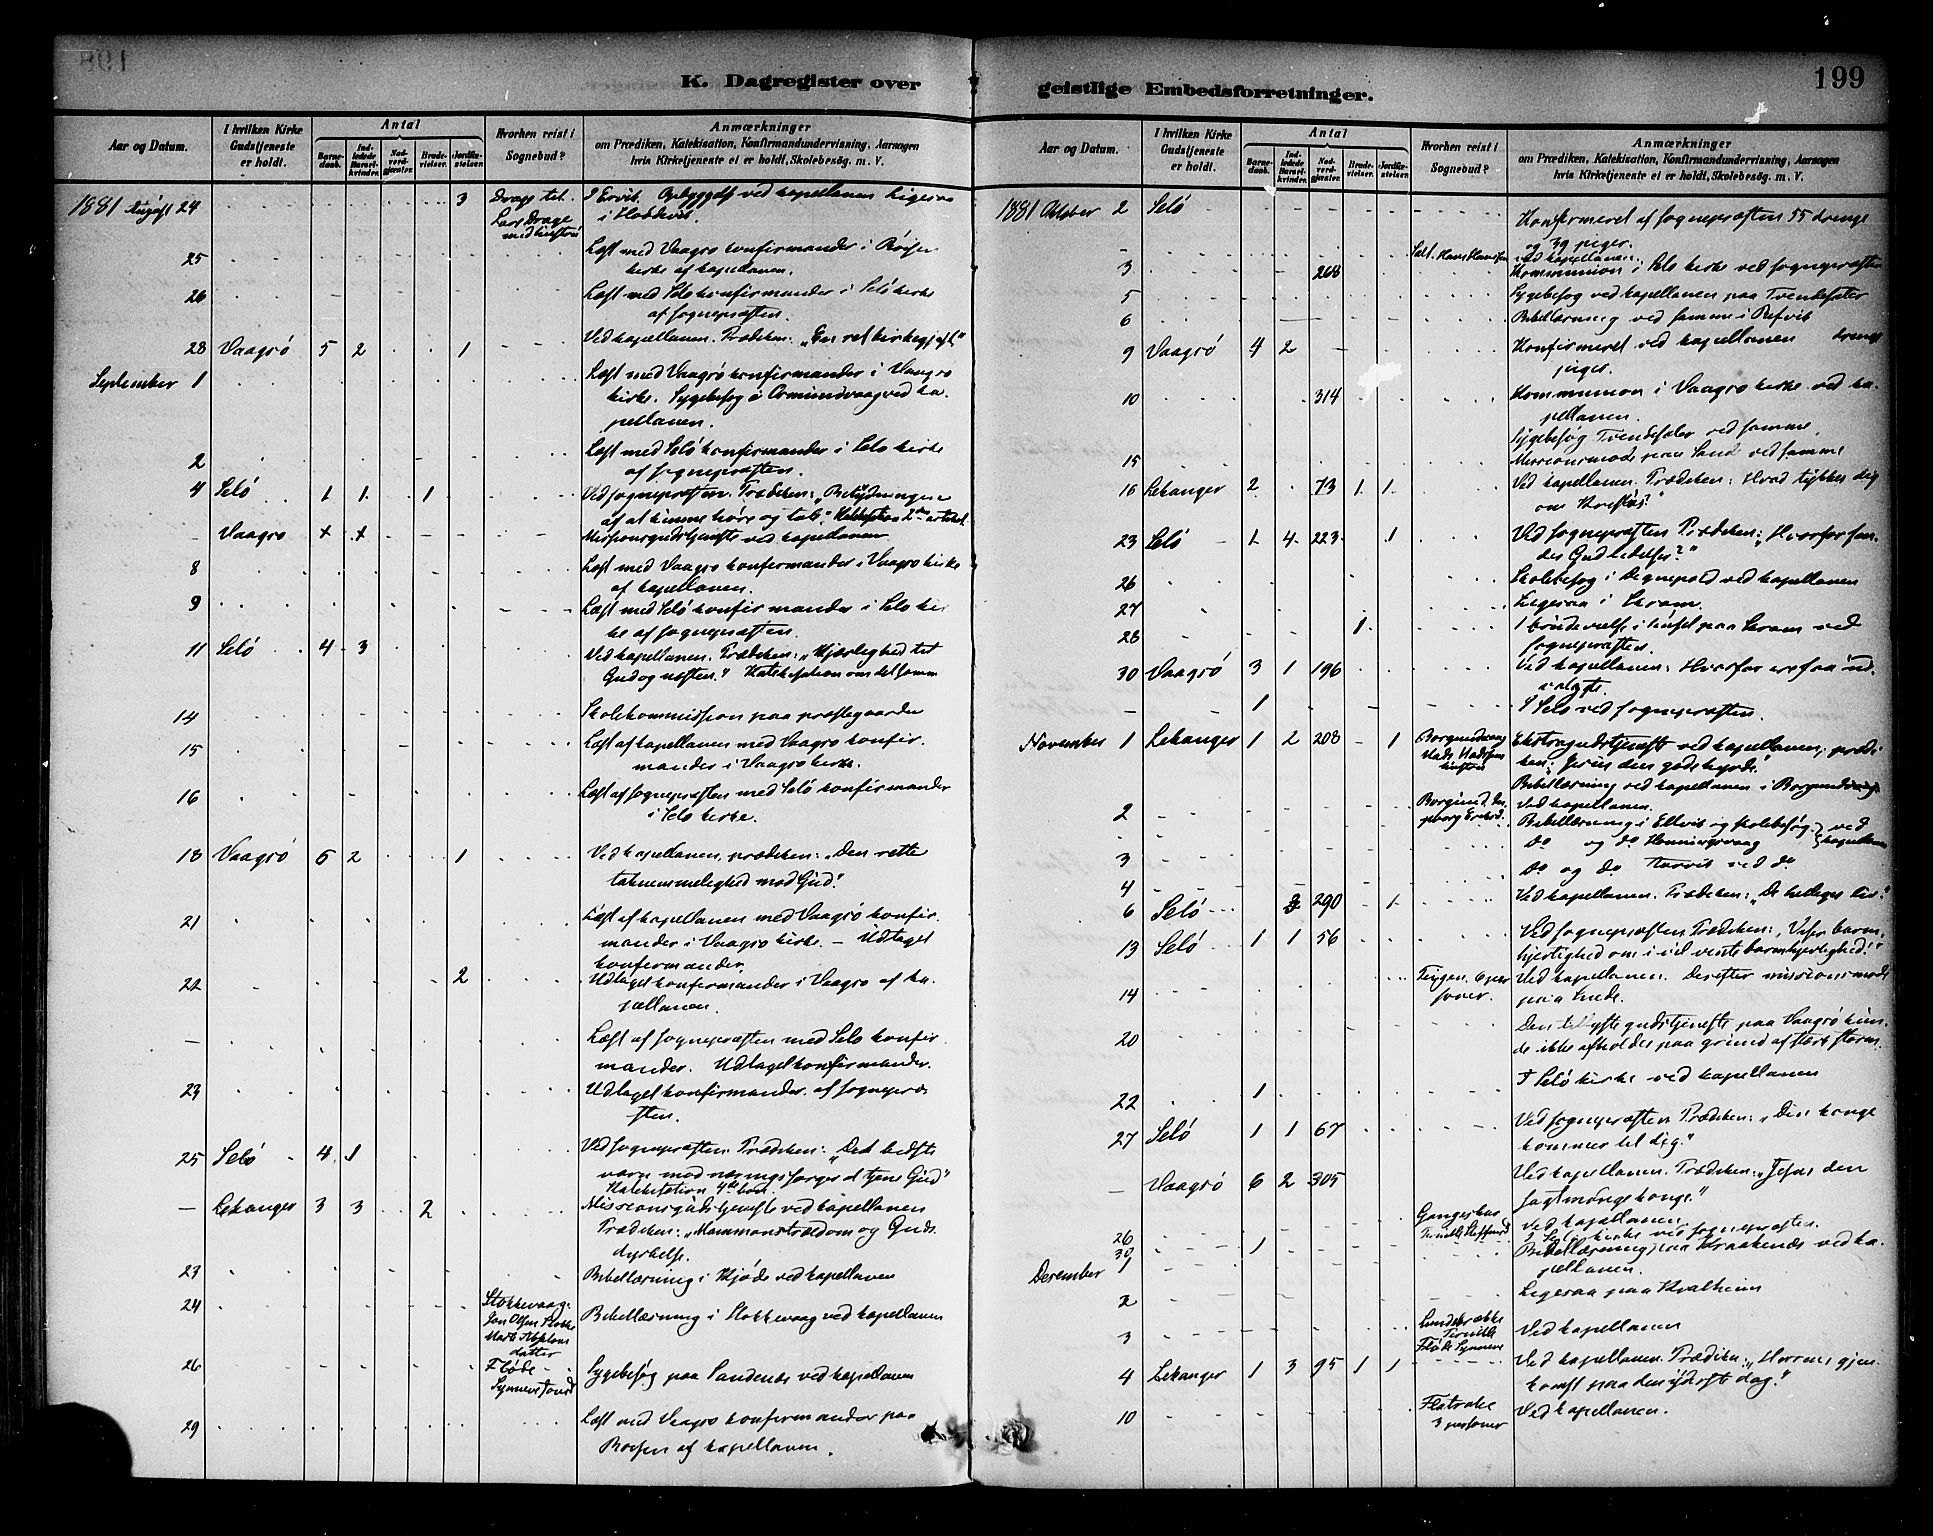 199
K. Dagregister over
geistlige Embedsforretninger.
Aar og Datum.
I hvilken Kirke Gudstjeneste er holdt.
Antal
Barnedaab.
Indledede Barselkvinder.
Nadverdgjæster.
Brudevielser.
Jordfæstelser.
Hvorhen reist i Sognebud?
Anmærkninger
om Prædiken, Katekisation, Konfirmandundervisning, Aarsagen
hvis Kirketjeneste ei er holdt, Skolebesög. m. V.
1881 August 24 3 Drage til Lars Drage med hustru I Ervik. Opbyggelse ved kapellanen Ligesaa
i Hoddevik.
25 Læst med Vaagsø konfirmander i
kirke af kapellanen.
26 Læst med Selø konfirmander i Selø kirke
af sognepræsten.
28 Vaagsø 5 2 1 Ved kapellanen. Prædiken: „En ret kirkegjest"
September 1 Læst med Vaagsø konfirmander i Vaagsø
kirke. Sygebesøg i Osmundvaag ved ka-
pellanen.
2 Læst med Selø konfirmander i Selø kirke
af sognepræsten.
4 Selø 1 1 1 Ved sognepræsten. Prædiken: „Betydningen
af at kunne høre og tale". Katekisation 2den artikel.
- Vaagsø + + Missionsgudstjeneste ved kapellanen
8 Læst med Vaagsø konfirmander i Vaagsø kirke
af kapellanen.
9 Læst med Selø konfirmander i Selø kir
ke af sognepræsten.
11 Selø 4 3 Ved kapellanen. Prædiken: „Kjærlighed til
Gud og næsten." Katekisation om det samm
14 Skolekommission paa præstegaarden
15 Læst af kapellanen med Vaagsø konfir.
mander i Vaagsø kirke.
16 Læst af sognepræsten med Selø konfirmander
i Selø kirke.
18 Vaagsø 6 2 1 Ved kapellanen, prædiken: „Den rette
taknemmelighed mod Gud."
21 Læst af kapellanen med Vaagsø konfir.
mander i Vaagsø kirke. – Udtaget
konfirmander.
22 2 Udtaget konfirmander i Vaagsø af ka.
pellanen.
– Læst af sognepræsten med Selø konfir
mander. Udtaget konfirmander.
23 Udtaget konfirmander af sognepræ
sten.
25 Selø 4 1 Ved sognepræsten. Prædiken: „Det bedste
værn mod næringssorger at tjene Gud"
Katekisation 4de bud.
– Lekanger 3 3 2 Missionsgudstjeneste ved kapellanen
Prædiken: „Mammonstrældom og Guds
dyrkelse.
23 Bibellæsning i Kjøde ved kapellanen
24 Stokkevaag. Bibellæsning i Stokkevaag ved kapellanen
26 Fløde Sygebesøg paa Sandenes ved kapellanen
29 Læst med Vaagsø konfirmander paa
af kapellanen.
1881 Oktober 2 Selø Konfirmeret af sognepræsten 55 drenge
og 39 piger.
ved kapellanen.
3 268 Kommunion i Selø kirke ved sognepræsten
5 Sygebesøg ved kapellanen paa
6 Bibellæsning ved samme i Refvik
9 Vaagsø 4 2 Konfirmeret ved kapellanen drenge
piger.
10 314 Kommunion i Vaagsø kirke ved ka.
pellanen.
Sygebesøg ved samme.
15 Missionsmøde paa ved samme
16 Lekanger 2 73 1 1 Ved kapellanen. Prædiken: Hvad tykkes dig
om Kristus?"
23 Selø 1 4 223 1 Ved sognepræsten Prædiken: „Hvorfor sen.
der Gud lidelser?"
26 Skolebesøg i Degnepold ved kapellanen
27 Ligesaa i Skram.
28 1 1 brudevielse i huset paa Skram ved
sognepræsten.
30 Vaagsø 3 1 196 Ved kapellanen: Hvorfor ere faa ud.
valgte.
– 1 I Selø ved sognepræsten.
November 1 Lekanger 1 2 208 1 Borgundvaag Ekstragudstjeneste ved kapellanen, prædi
ken: Jesus den gode hyrde."
Bibellæsning ved kapellanen i Borgundvaag
2 Ved kapellanen.
Bibellæsning i Ellvik og skolebesøg } ved
3 Do og do Honningsvaag kapellanen
4 Do og do ved do
6 Selø 3 290 1 Ved kapellanen. Prædiken: „De helliges liv."
13 Selø 1 1 56 Ved sognepræsten Prædiken: „Viser barm.
hjertighed om i vil vente barmhjertighed!"
14 Ved kapellanen. Derefter missionsmøde
paa
20 Den tillyste gudstjeneste paa Vaagsø kun.
de ikke afholdes paa grund af stærk storm.
22 1 I Selø kirke ved kapellanen
27 Selø 1 1 67 Ved sognepræsten Prædiken: „Din konge
kommer til dig."
– Vaagsø 6 2 305 Ved kapellanen. Prædiken: „Jesus den
sagtmodige konge."
26 Ved kapellanen.
30 1 I Selø kirke ved sognepræsten.
December 1 Bibellæsning paa Kraakenes ved ka.
pellanen.
2 Ligesaa paa Kvalheim
3 Ved kapellanen
4 Lekanger 1 3 95 1 1 Ved kapellanen. Prædiken: „Herrens gjen.
komst paa den yderste dag."
10 Flatrake 3 personer Ved kapellanen.